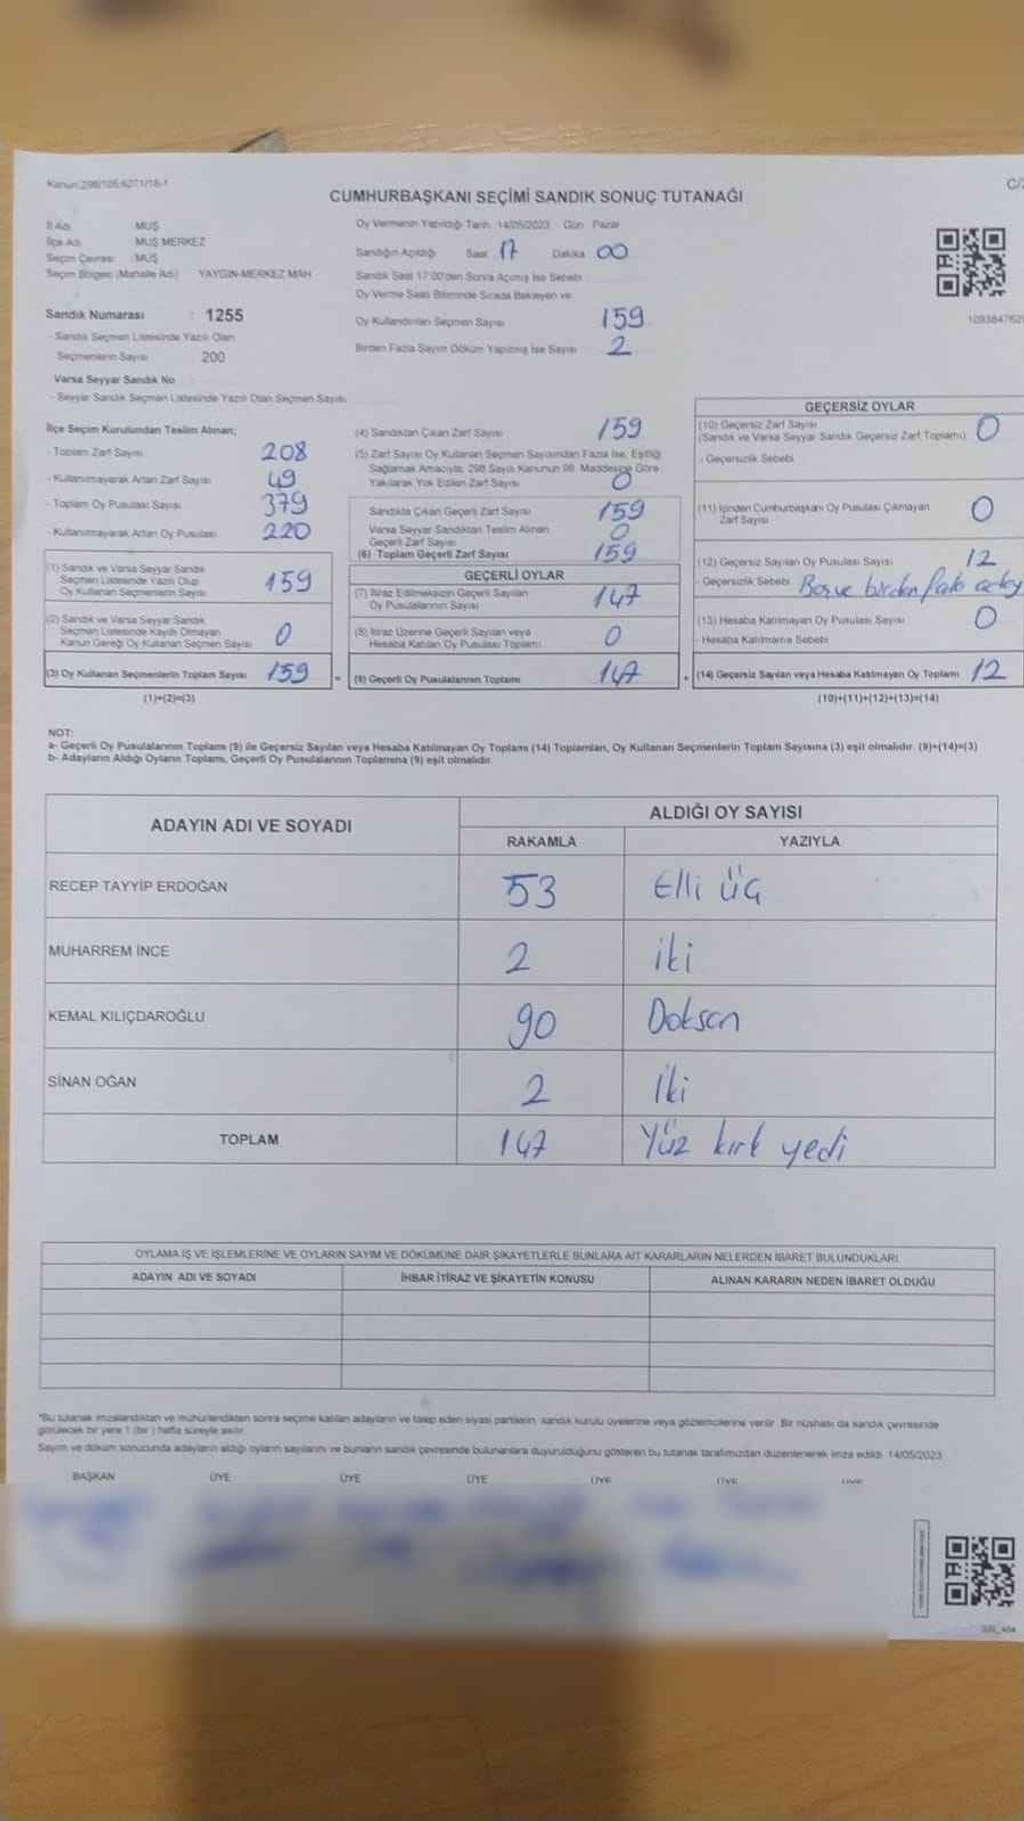 Kanun:298/105;6271/18-1
C/2
CUMHURBAŞKANI SEÇİMİ SANDIK SONUÇ TUTANAĞI
İl Adı : MUŞ
İlçe Adı : MUŞ MERKEZ
Seçim Çevresi : MUŞ
Seçim Bölgesi (Mahalle Adı) YAYGIN-MERKEZ MAH
Sandık Numarası : 1255
- Sandık Seçmen Listesinde Yazılı Olan
Seçmenlerin Sayısı 200
Varsa Seyyar Sandık No
- Seyyar Sandık Seçmen Listesinde Yazılı Olan Seçmen Sayısı
Oy Vermenin Yapıldığı Tarih 14/05/2023 Gün Pazar
Sandığın Açıldığı Saat 17 Dakika 00
Sandık Saat 17:00'den Sonra Açılmış İse Sebebi
Oy Verme Saati Bitiminde Sırada Bekleyen ve
Oy Kullandırılan Seçmen Sayısı 159
Birden Fazla Sayım Döküm Yapılmış İse Sayısı 2
İlçe Seçim Kurulundan Teslim Alınan;
- Toplam Zarf Sayısı 208
- Kullanılmayarak Artan Zarf Sayısı 49
- Toplam Oy Pusulası Sayısı 379
- Kullanılmayarak Artan Oy Pusulası 220
(1) Sandık ve Varsa Seyyar Sandık
Seçmen Listesinde Yazılı Olup
Oy Kullanan Seçmenlerin Sayısı 159
(2) Sandık ve Varsa Seyyar Sandık
Seçmen Listesinde Kayıtlı Olmayan
Kanun Gereği Oy Kullanan Seçmen Sayısı 0
(3) Oy Kullanan Seçmenlerin Toplam Sayısı 159
(1)+(2)=(3)
(4) Sandıktan Çıkan Zarf Sayısı 159
(5) Zarf Sayısı Oy Kullanan Seçmen Sayısından Fazla İse, Eşitliği
Sağlamak Amacıyla; 298 Sayılı Kanunun 98. Maddesine Göre
Yakılarak Yok Edilen Zarf Sayısı 0
Sandıkta Çıkan Geçerli Zarf Sayısı 159
Varsa Seyyar Sandıktan Teslim Alınan
Geçerli Zarf Sayısı 0
(6) Toplam Geçerli Zarf Sayısı 159
GEÇERLİ OYLAR
(7) İtiraz Edilmeksizin Geçerli Sayılan
Oy Pusulalarının Sayısı 147
(8) İtiraz Üzerine Geçerli Sayılan veya
Hesaba Katılan Oy Pusulası Toplamı 0
(9) Geçerli Oy Pusulalarının Toplamı 147
GEÇERSİZ OYLAR
(10) Geçersiz Zarf Sayısı 0
(Sandık ve Varsa Seyyar Sandık Geçersiz Zarf Toplamı)
- Geçersizlik Sebebi
(11) İçinden Cumhurbaşkanı Oy Pusulası Çıkmayan
Zarf Sayısı 0
(12) Geçersiz Sayılan Oy Pusulası Sayısı 12
- Geçersizlik Sebebi Boş ve birden fazla aday
(13) Hesaba Katılmayan Oy Pusulası Sayısı 0
- Hesaba Katılmama Sebebi
(14) Geçersiz Sayılan veya Hesaba Katılmayan Oy Toplamı 12
(10)+(11)+(12)+(13)=(14)
NOT:
a- Geçerli Oy Pusulalarının Toplamı (9) ile Geçersiz Sayılan veya Hesaba Katılmayan Oy Toplamı (14) Toplamları, Oy Kullanan Seçmenlerin Toplam Sayısına (3) eşit olmalıdır. (9)+(14)=(3)
b- Adayların Aldığı Oyların Toplamı, Geçerli Oy Pusulalarının Toplamına (9) eşit olmalıdır.
ADAYIN ADI VE SOYADI
ALDIĞI OY SAYISI
RAKAMLA YAZIYLA
RECEP TAYYİP ERDOĞAN 53 Elli üç
MUHARREM İNCE 2 iki
KEMAL KILIÇDAROĞLU 90 Doksan
SİNAN OĞAN 2 İki
TOPLAM 147 Yüz kırk yedi
OYLAMA İŞ VE İŞLEMLERİNE VE OYLARIN SAYIM VE DÖKÜMÜNE DAİR ŞİKAYETLERLE BUNLARA AİT KARARLARIN NELERDEN İBARET BULUNDUKLARI
ADAYIN ADI VE SOYADI İHBAR İTİRAZ VE ŞİKAYETİN KONUSU ALINAN KARARIN NEDEN İBARET OLDUĞU
*Bu tutanak imzalandıktan ve mühürlendikten sonra seçime katılan adayların ve talep eden siyasi partilerin, sandık kurulu üyelerine veya gözlemcilerine verilir. Bir nüshası da sandık çevresinde
görülecek bir yere 1 (bir) hafta süreyle asılır.
Sayım ve döküm sonucunda adayların aldığı oyların sayılarını ve bunların sandık çevresinde bulunanlara duyurulduğunu gösteren bu tutanak tarafımızdan düzenlenerek imza edildi. 14/05/2023
BAŞKAN ÜYE ÜYE ÜYE ÜYE ÜYE ÜYE